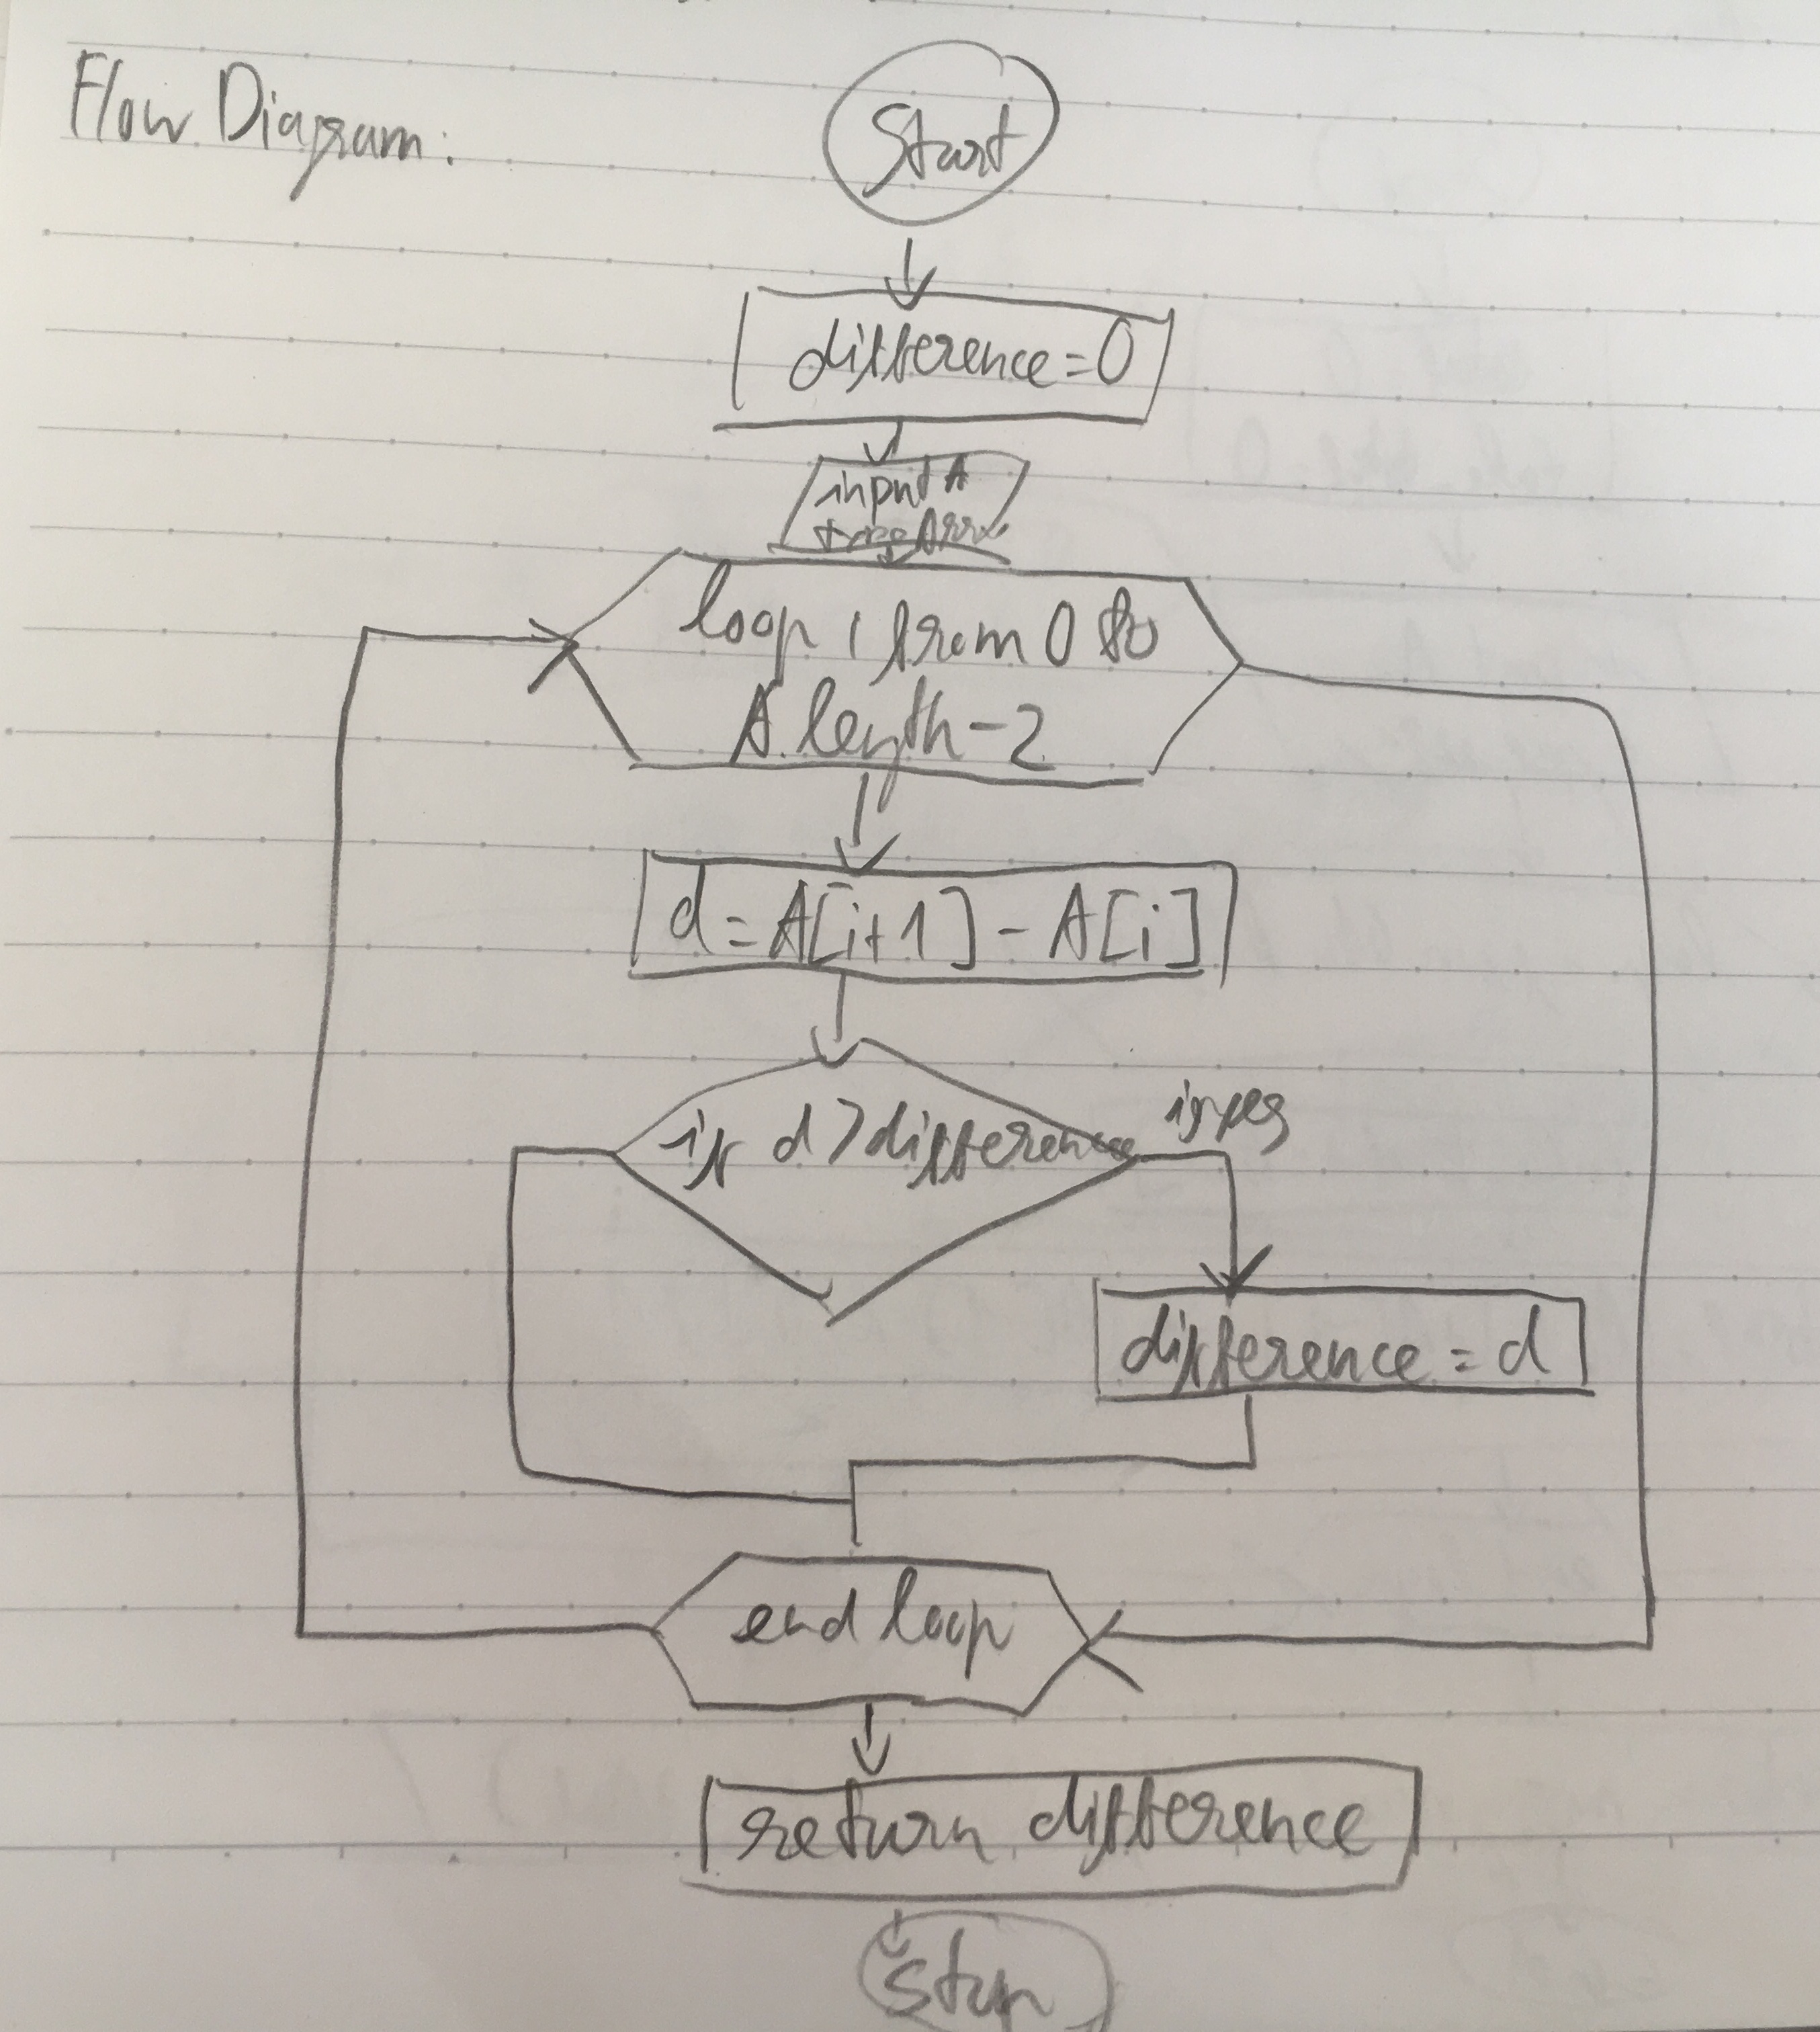 Flow Diagram:
Start
difference=0
input A
type Array
loop i from 0 to
A.length-2
d=A[i+1]-A[i]
if d>difference
if yes
difference=d
end loop
return difference
stop